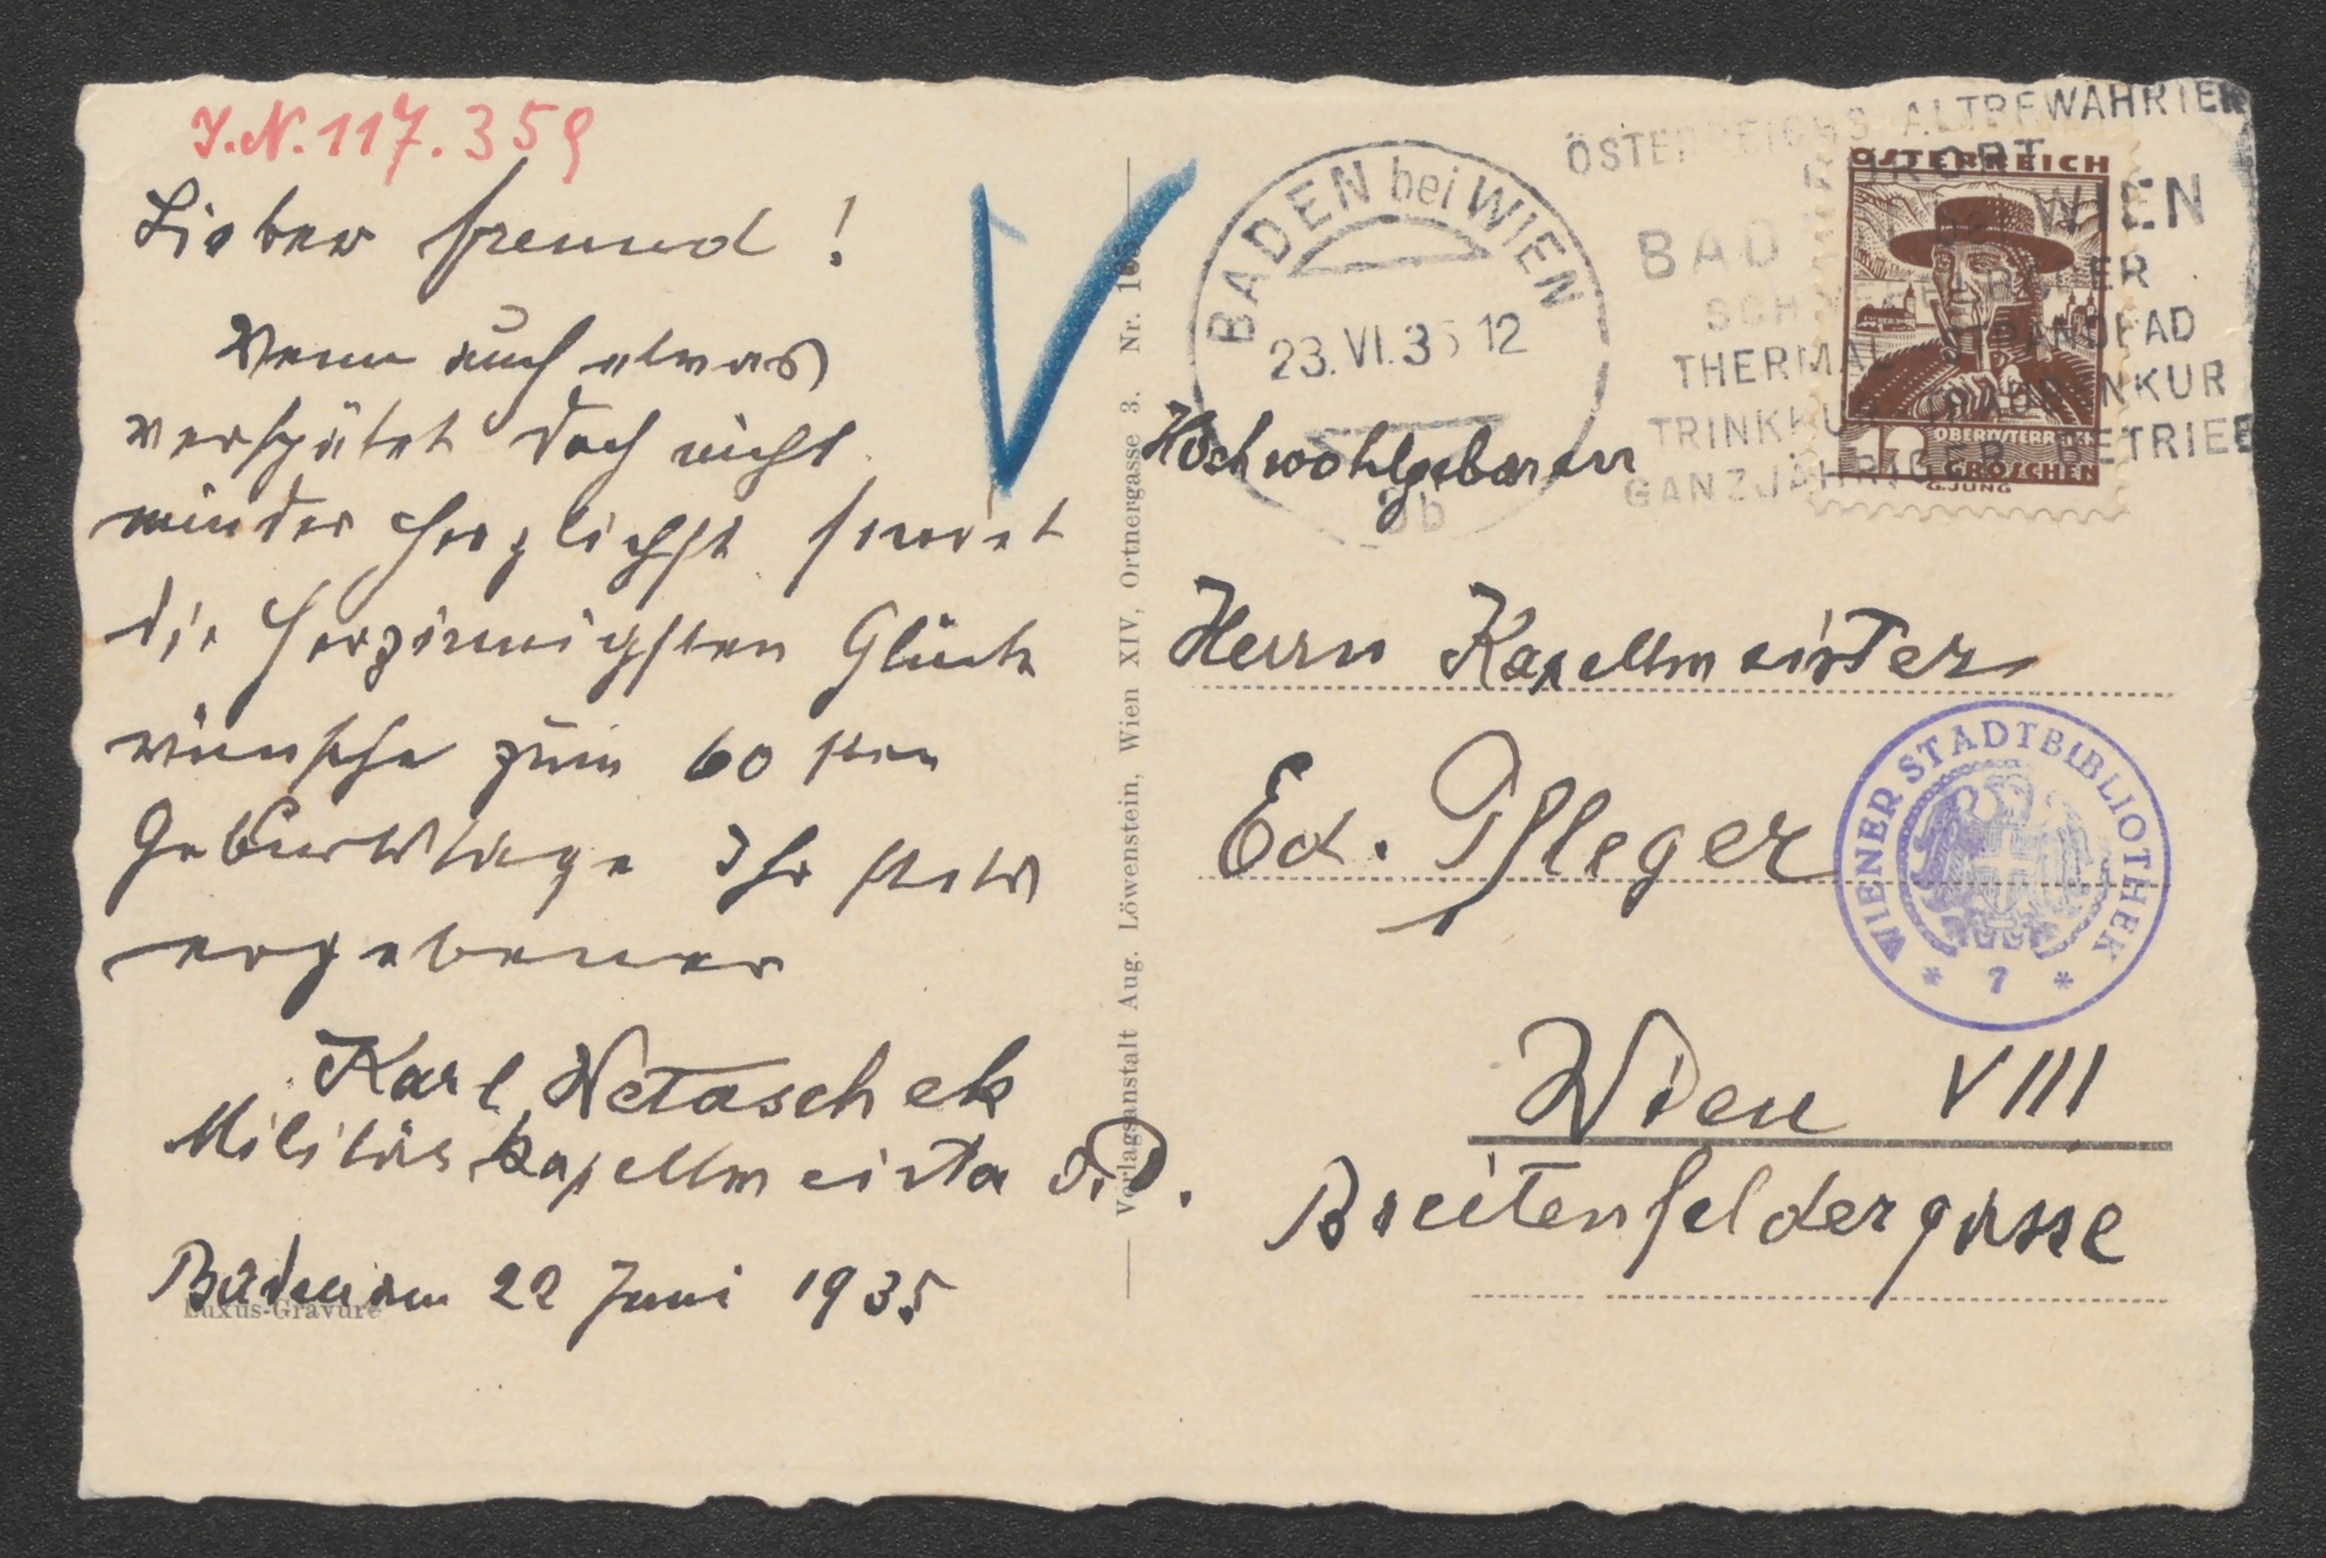 I.N. 117.359
Lieber Freund!
Wenn auch etwas
verspätet doch nicht
minder herzlichst sendet
die herzinnigsten Glück
wünsche zum 60 sten
Geburtstage Ihr stets
ergebener
Karl Netaschek
Militärkapellmeister d.R.
Baden am 22 Juni 1935
Luxus-Gravure
Verlagsanstalt Aug. Löwenstein, Wien XIV, Ortnergasse 3. Nr.
BADEN bei WIEN
23.VI.35 12
ÖSTERREICHS ALTBEWÄHRTER
KURORT
BADEN bei WIEN
THERMAL STRANDBAD
TRINKKUR TRAUBENKUR
GANZJÄHRIGER BETRIEB
ÖSTERREICH
OBERÖSTERREICH
12 GROSCHEN
G.JUNG
Hochwohlgeboren
Herrn Kapellmeister
Ed. Pfleger
WIENER STADTBIBLIOTHEK
* 7 *
Wien VIII
Breitenfeldergasse